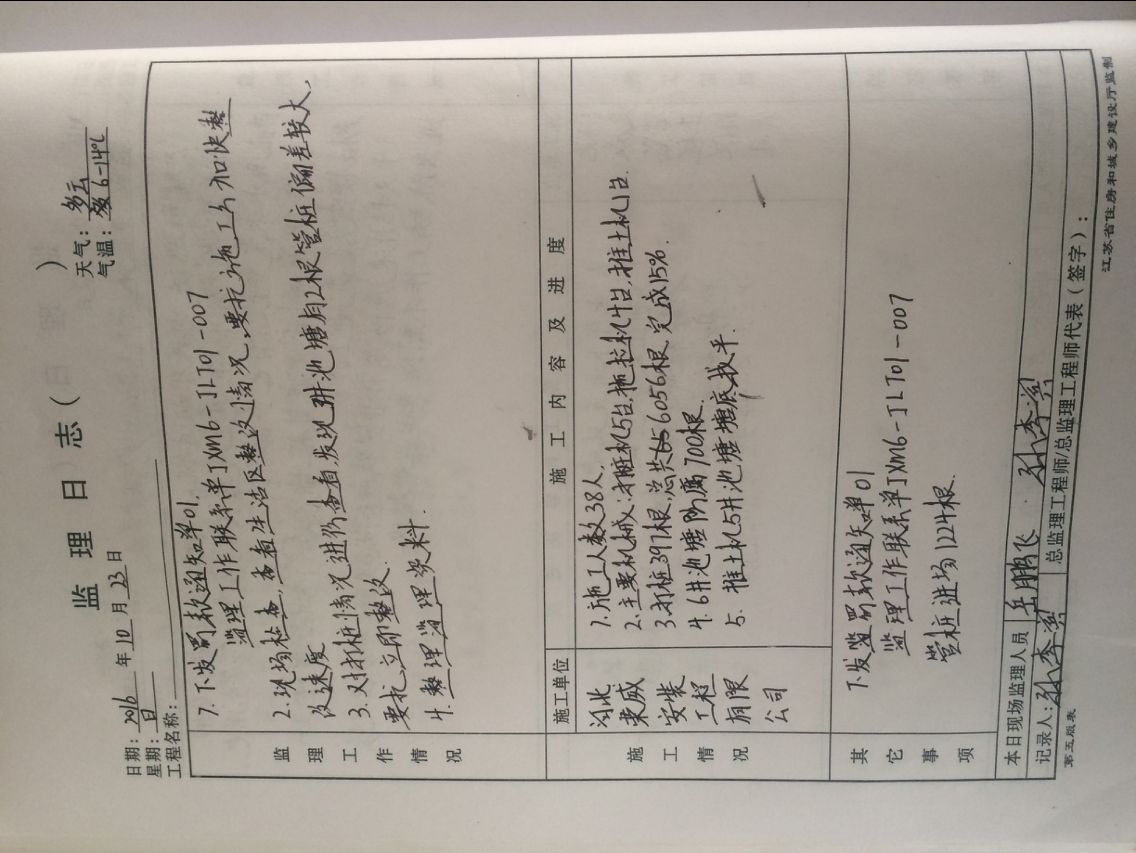 监 理 日 志 ( )
日期: 2016 年 10 月 23 日
天气: 多云
星期: 日
气温: 6-14℃
工程名称:
监理工作情况
1. 下发罚款通知单01
监理工作联系单JXM6-JLT01-007
2. 现场检查,查看生活区整改情况,要求施工方加快整
改速度
3. 对打桩情况进行查看,发现3#池塘有2根管桩偏差较大,
要求立即整改.
4. 整理监理资料.
施工情况
施工单位
施 工 内 容 及 进 度
河北
荣威
安装
工程
有限
公司
1. 施工人数38人.
2. 主要机械: 打桩机5台,拖拉机4台,推土机1台.
3. 打桩397根,总共6056根,完成15%.
4. 6#池塘防腐700根.
5. 推土机5#池塘塘底找平.
其它事项
下发监罚款通知单01
监理工作联系单JXM6-JLT01-007
管桩进场1224根.
本日现场监理人员 岳鹏飞
记录人:
总监理工程师/总监理工程师代表(签字):
第五版表
江苏省住房和城乡建设厅监制